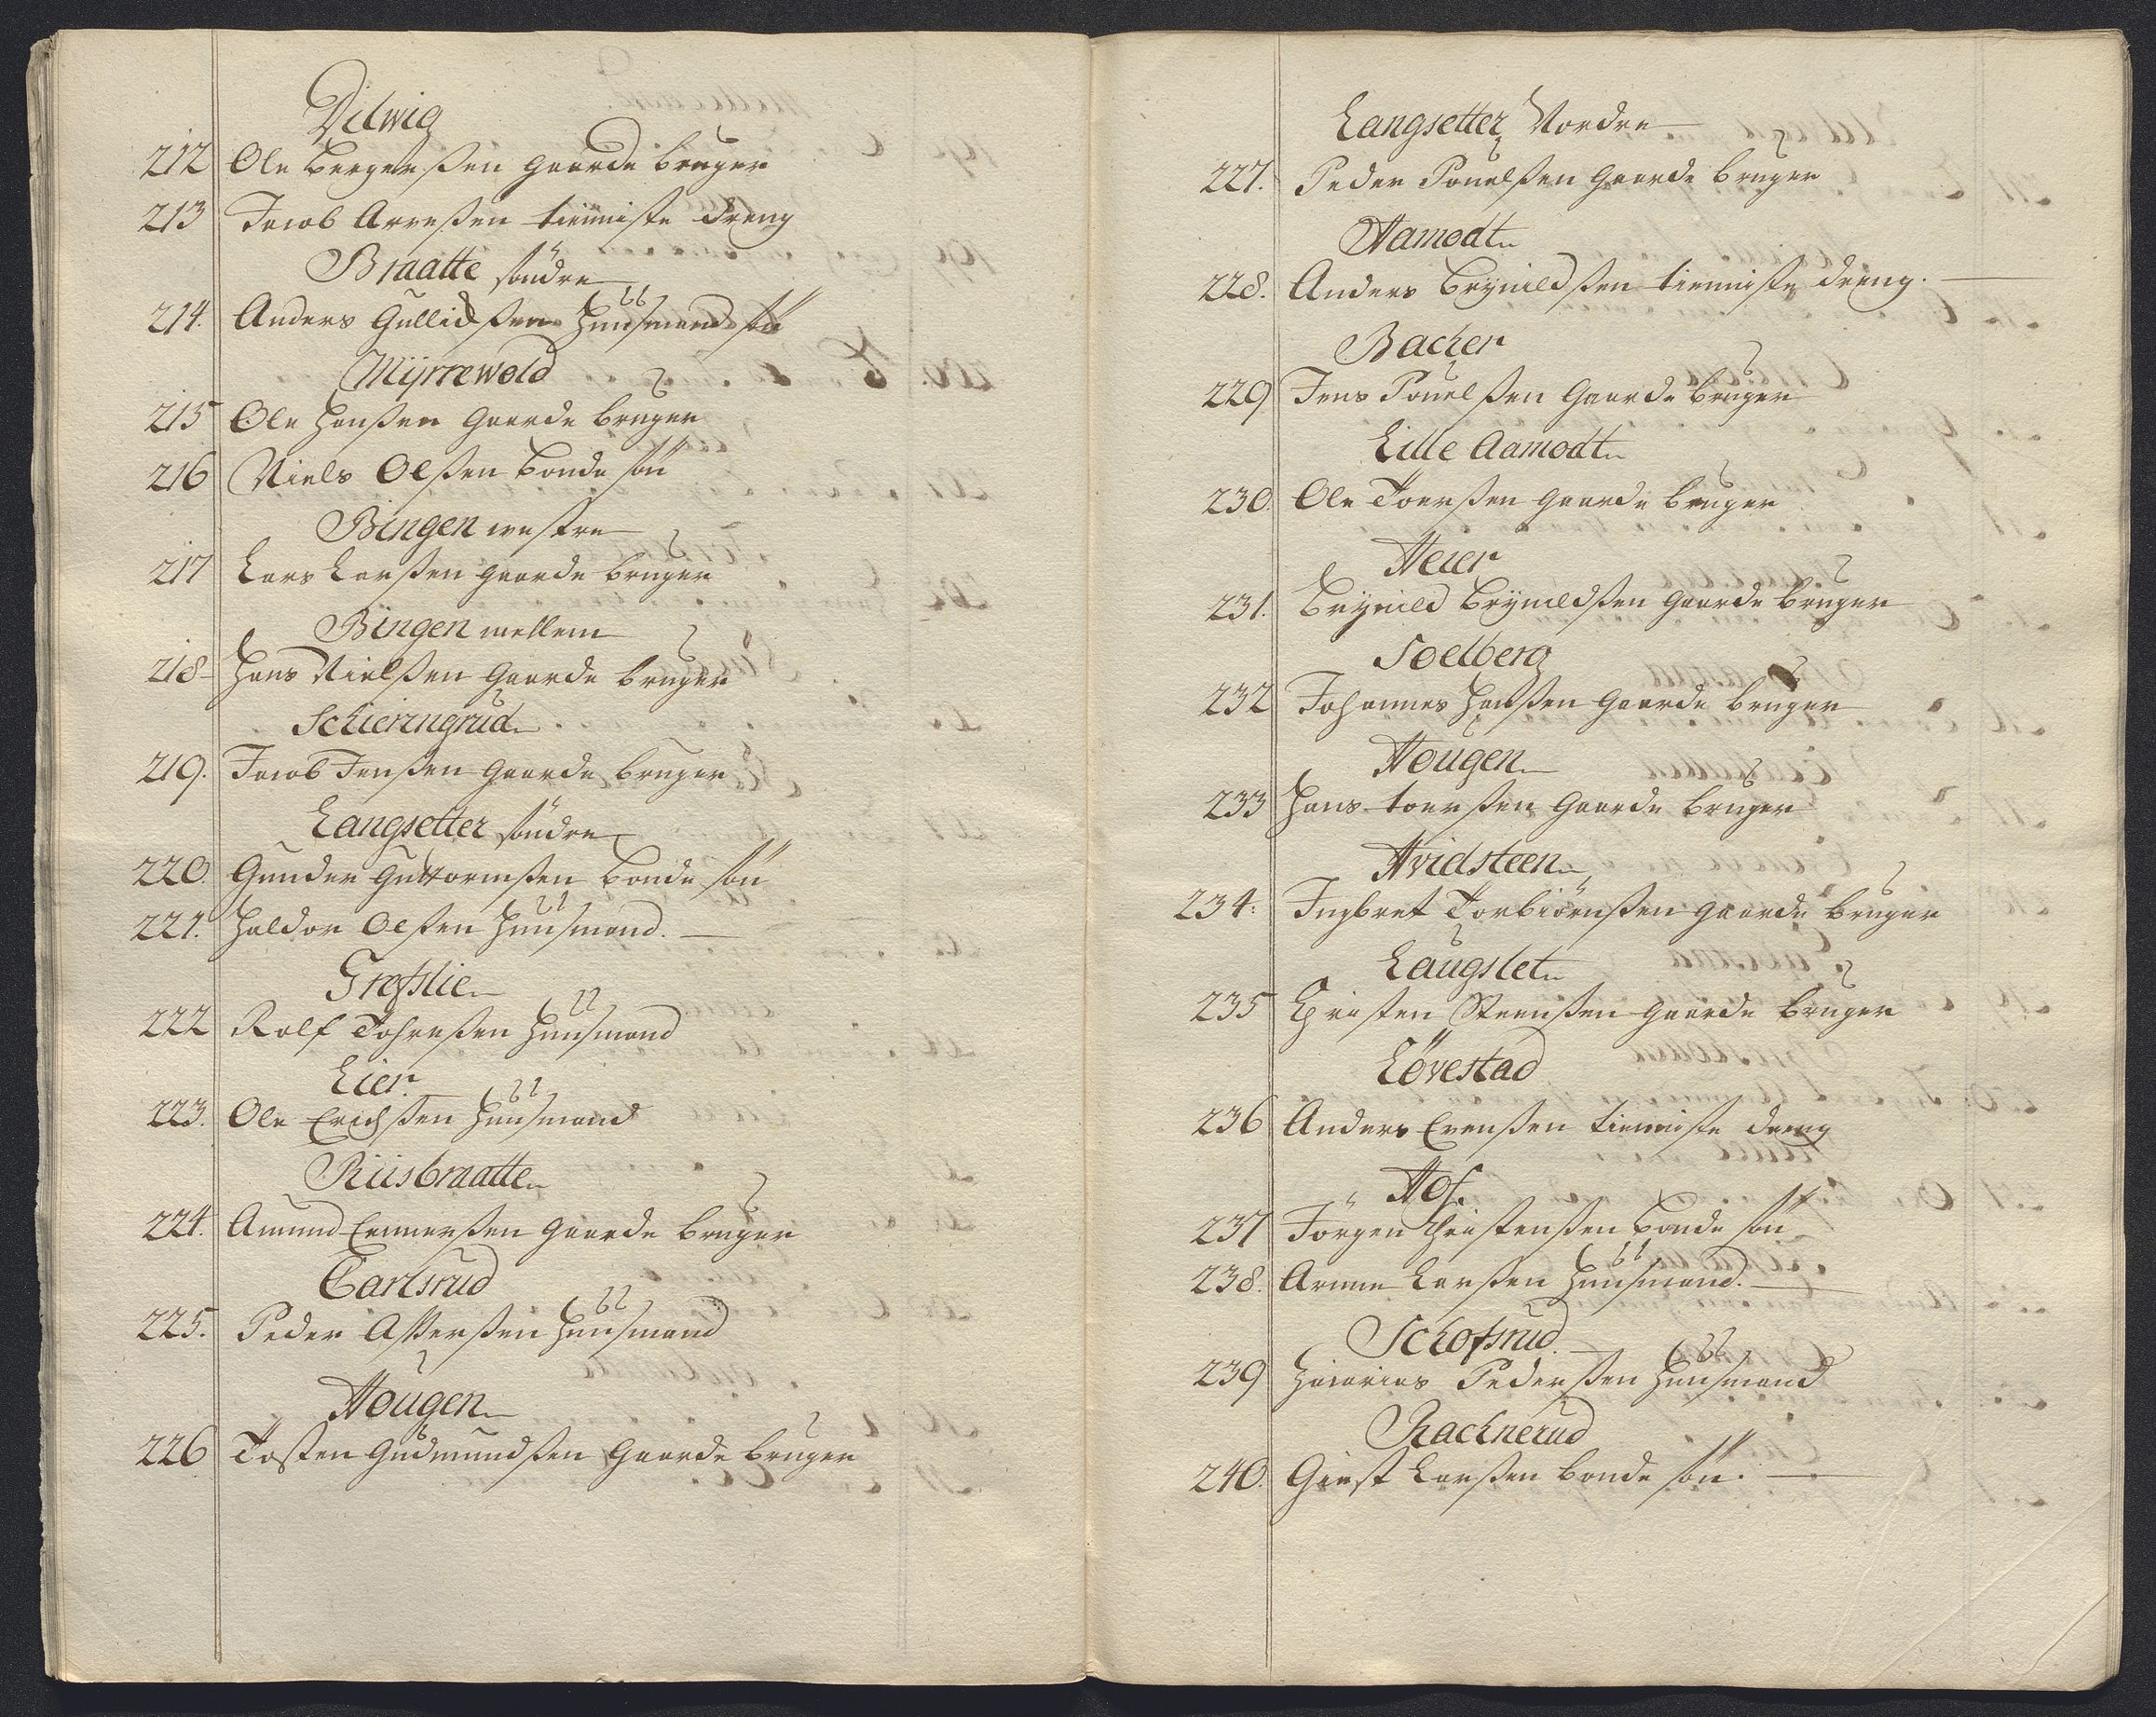 Vilwig
212 Ole Bergersßen gaarde bruger
213 Jacob Arnesßen tienniste dreng
Braatte søndre
214. Anders Gullicksßen Huusmand søn
Mÿrrewold
215 Ole Hansßen gaarde bruger
216 Niels Olsßen bonde søn
Bingen westre
217 Lars Larsßen gaarde bruger
Bingen mellem
218 Hans Nielsßen gaarde bruger
Schieringrud
219. Jacob Jensßen gaarde bruger
Langsetter søndre
220. Gunder Guttormsßen bonde søn
221. Haldor Olsßen Huusmand.
Grøfslie
222 Rolf Tohresßen Huusmand
Lier
223. Ole Erichsßen Huusmand
Riisbraatte
224. Amund Ennersßen gaarde bruger
Carlsrud
225. Peder Assersßen Huusmand
Hougen
226 Tosten Gudmundsßen gaarde bruger
Langsetter Nordre
227. Peder Pouelsßen gaarde bruger
Aamodt
228. Anders Brÿnildsßen tienniste dreng.
Bacher
229 Jens Pouelsßen gaarde bruger
Lille Aamodt
230. Ole Toersßen gaarde bruger
Heier
231. Brÿnild Brÿnildsßen gaarde bruger
Soelberg
232 Johannes Hansßen gaarde bruger
Hougen
233 Hans Toersßen gaarde bruger
Hvidsteen
234: Ingbret Torbiørnsßen gaarde bruger
Laugslet
235 Christen Steensßen gaarde bruger
Løvestad
236 Anders Evensßen tienniste dreng
Hof.
237 Jörgen Christensßen bonde søn
238. Larsßen Huusmand.
Schofsrud.
239 Pedersßen Huusmand
Rachnerud
240. Giest Larsßen bonde søn.